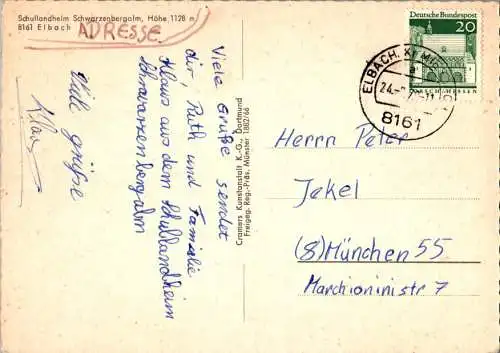 Schullandheim Schwarzenbergalm, Höhe 1128 m
8161 Elbach
ADRESSE
Viele Grüße sendet
dir, Ruth und Familie
Klaus aus dem Schullandheim
Schwarzenbergalm
Viele grüße
Klaus
Cramers Kunstanstalt K.-G., Dortmund
Freigeg. Reg.-Präs. Münster 1802/66
Deutsche Bundespost
20
ELBACH
24.
8161
Herrn Peter
Jekel
(8) München 55
Marchioninistr 7